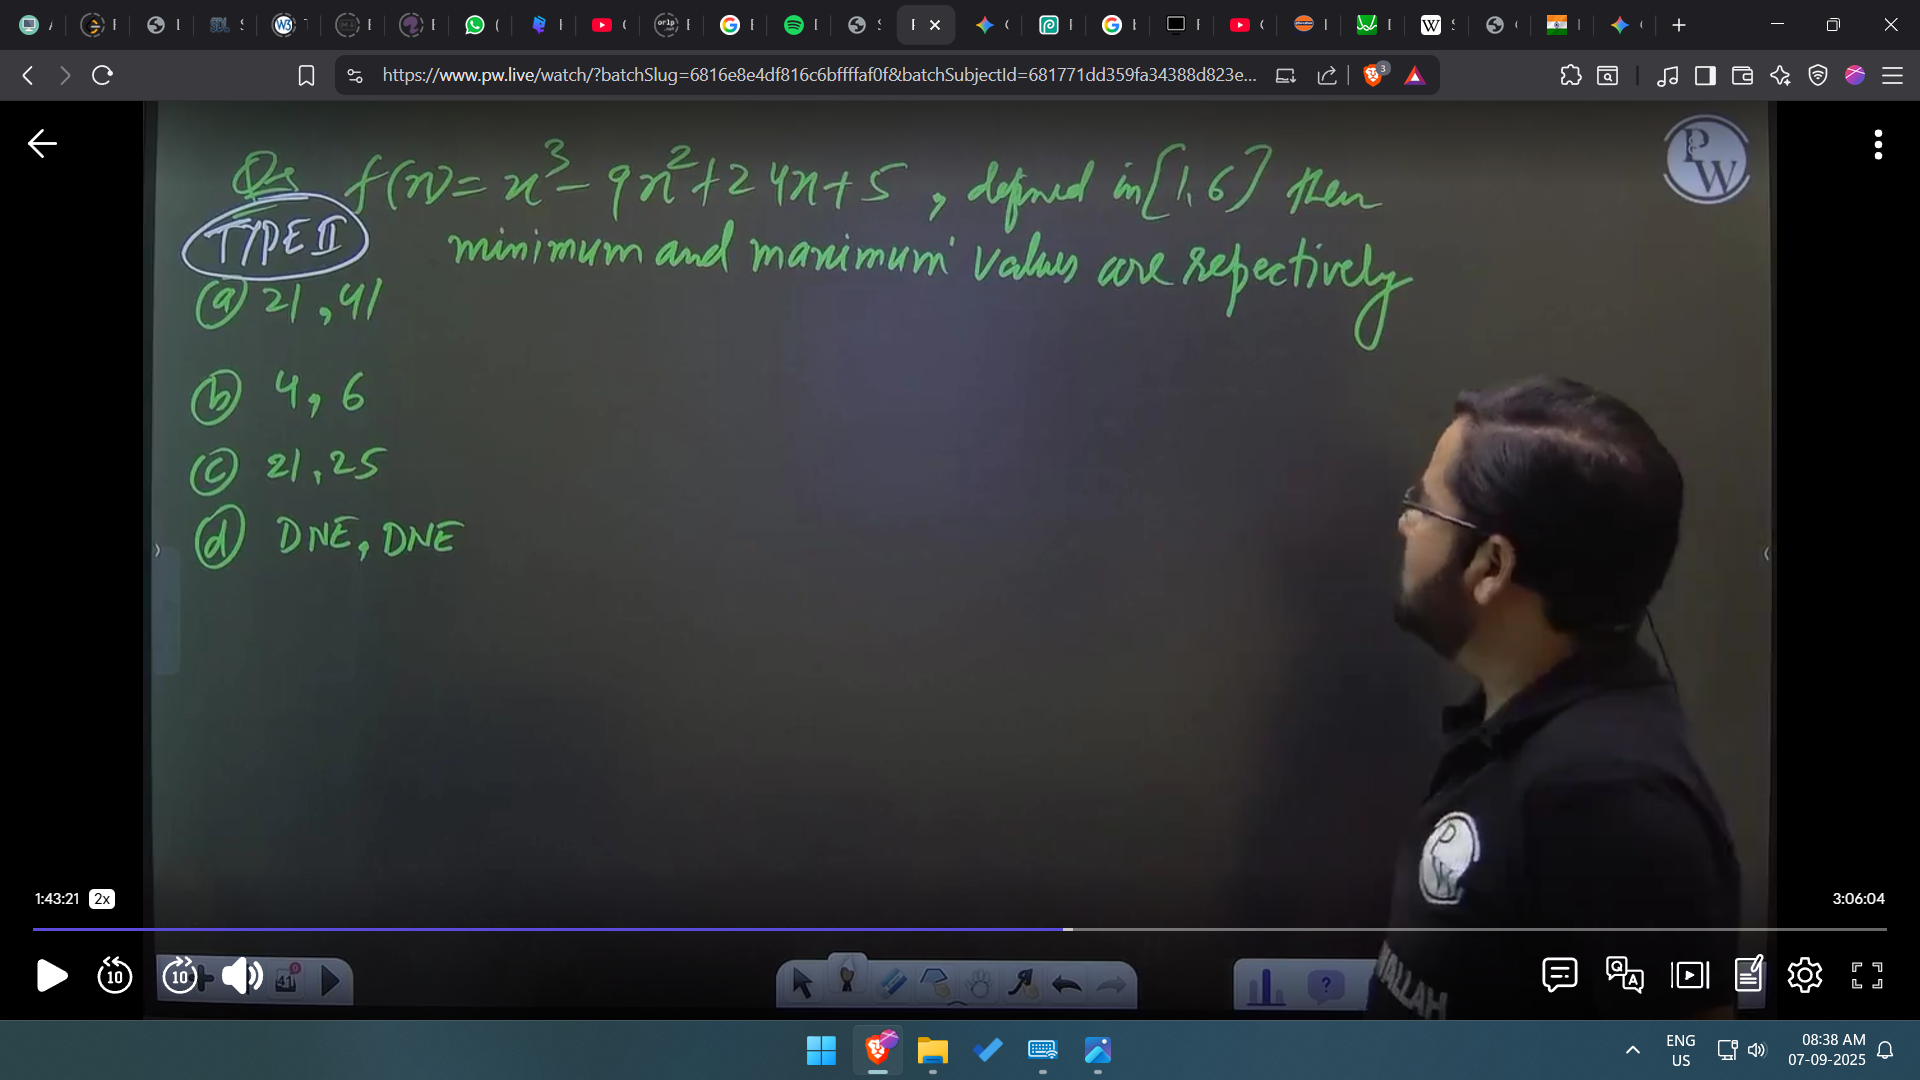 https://www.pw.live/watch/?batchSlug=6816e8e4df816c6bffffaf0f&batchSubjectId=681771dd359fa34388d823e...
3
Qs f(x) = x³ - 9x² + 24x + 5 , defined in [1, 6] then
TYPE II minimum and maximum values are repectively
(a) 21 , 41
(b) 4 , 6
(c) 21 , 25
(d) DNE , DNE
PW
PW
WALLAH
1:43:21 2x
3:06:04
10 10 41 0
?
Q A
ENG
US
08:38 AM
07-09-2025